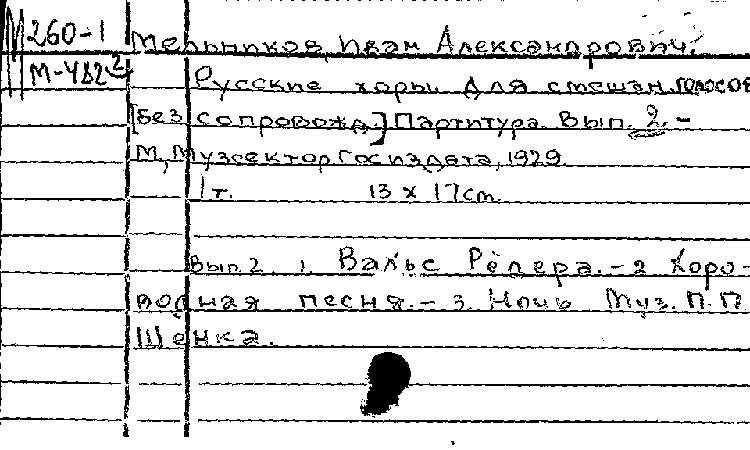 М 260-1 Мельников, Иван Александрович.
М-482² Русские хоры для смешан. голосов
[Без сопровожд.] Партитура. Вып. 2. -
М., Музсектор Госиздата, 1929.
1 т. 13 x 17 cm.
Вып. 2. 1. Вальс Рёлера. - 2 Хоро-
водная песня. - 3. Ночь Муз. П. П.
Шенка.